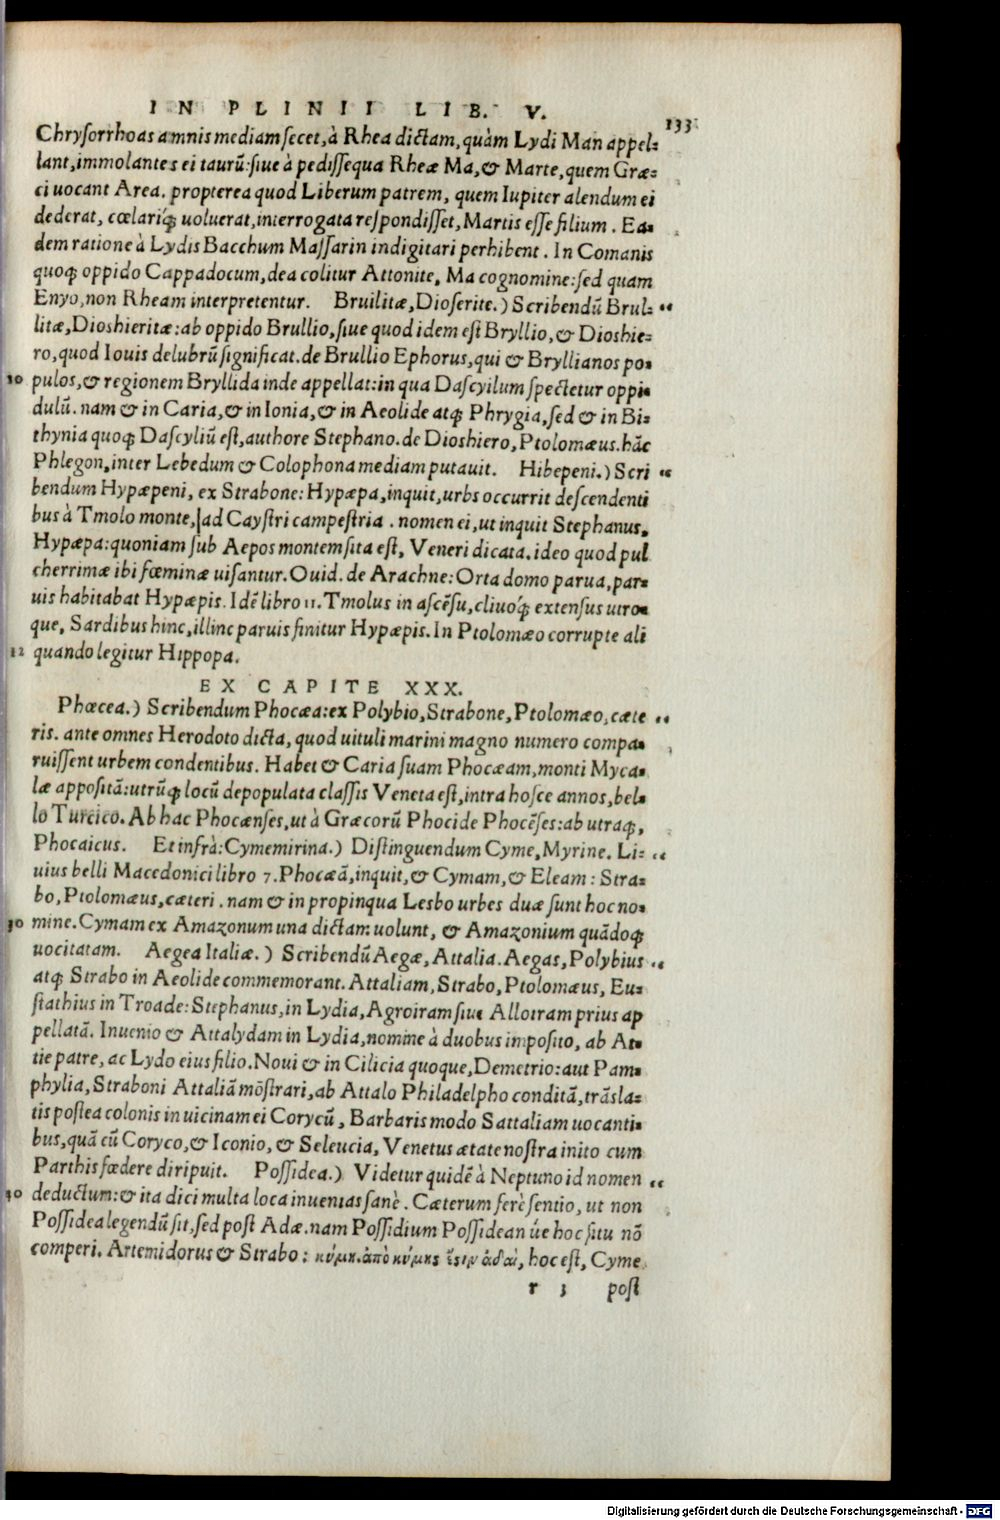 IN PLINII LIB. V. 133
Chryſorrhoas amnis mediam ſecet, à Rhea dictam, quàm Lydi Man appel⸗
lant, immolantes ei taurũ: ſiue à pediſſequa Rheæ Ma, & Marte, quem Græ⸗
ci uocant Area. propterea quod Liberum patrem, quem Iupiter alendum ei
dederat, cœlariq́; uoluerat, interrogata reſpondiſſet, Martis eſſe filium. Ea⸗
dem ratione à Lydis Bacchum Maſſarin indigitari perhibent. In Comanis
quoq; oppido Cappadocum, dea colitur Attonite, Ma cognomine: ſed quam
Enyo, non Rheam interpretentur. Bruilitæ, Dioſerite.) Scribendũ Brul⸗ „
litæ, Dioshieritæ: ab oppido Brullio, ſiue quod idem eſt Bryllio, & Dioshie⸗
ro, quod Iouis delubrũ ſignificat. de Brullio Ephorus, qui & Bryllianos po⸗
10 pulos, & regionem Bryllida inde appellat: in qua Daſcyilum ſpectetur oppi⸗
dulũ. nam & in Caria, & in Ionia, & in Aeolide atq; Phrygia, ſed & in Bi⸗
thynia quoq; Daſcyliũ eſt, authore Stephano. de Dioshiero, Ptolomæus. hãc
Phlegon, inter Lebedum & Colophona mediam putauit. Hibepeni.) Scri „
bendum Hypæpeni, ex Strabone: Hypæpa, inquit, urbs occurrit deſcendenti
bus à Tmolo monte, ad Cayſtri campeſtria. nomen ei, ut inquit Stephanus,
Hypæpa: quoniam ſub Aepos montem ſita eſt, Veneri dicata. ideo quod pul
cherrimæ ibi fœminæ uiſantur. Ouid. de Arachne: Orta domo parua, par⸗
uis habitabat Hypæpis. Idẽ libro 11. Tmolus in aſcẽſu, cliuoq́; extenſus utro⸗
que, Sardibus hinc, illinc paruis finitur Hypæpis. In Ptolomæo corrupte ali
12 quando legitur Hippopa.
EX CAPITE XXX.
Phœcea.) Scribendum Phocæa: ex Polybio, Strabone, Ptolomæo, cæte „
ris. ante omnes Herodoto dicta, quod uituli marini magno numero compa⸗
ruiſſent urbem condentibus. Habet & Caria ſuam Phocæam, monti Myca⸗
læ appoſitã: utrũq; locũ depopulata claſſis Veneta eſt, intra hoſce annos, bel⸗
lo Turcico. Ab hac Phocænſes, ut à Græcorũ Phocide Phocẽſes: ab utraq;,
Phocaicus. Et infrà: Cymemirina.) Diſtinguendum Cyme, Myrine. Li⸗ „
uius belli Macedonici libro 7. Phocæã, inquit, & Cymam, & Eleam: Stra⸗
bo, Ptolomæus, cæteri. nam & in propinqua Lesbo urbes duæ ſunt hoc no⸗
30 mine. Cymam ex Amazonum una dictam uolunt, & Amazonium quãdoq;
uocitatam. Aegea Italiæ.) Scribendũ Aegæ, Attalia. Aegas, Polybius „
atq; Strabo in Aeolide commemorant. Attaliam, Strabo, Ptolomæus, Eu⸗
ſtathius in Troade: Stephanus, in Lydia, Agroiram ſiue Alloiram prius ap
pellatã. Inuenio & Attalydam in Lydia, nomine à duobus impoſito, ab At⸗
tie patre, ac Lydo eius filio. Noui & in Cilicia quoque, Demetrio: aut Pam⸗
phylia, Straboni Attaliã mõſtrari, ab Attalo Philadelpho conditã, trãsla⸗
tis poſtea colonis in uicinam ei Corycũ, Barbaris modo Sattaliam uocanti⸗
bus, quã cũ Coryco, & Iconio, & Seleucia, Venetus ætate noſtra inito cum
Parthis fœdere diripuit. Poſſidea.) Videtur quidẽ à Neptuno id nomen „
40 deductum: & ita dici multa loca inuenias ſanè. Cæterum ferè ſentio, ut non
Poſſidea legendũ ſit, ſed poſt Adæ. nam Poſſidium Poſſidean úe hoc ſitu nõ
comperi. Artemidorus & Strabo: κύμη. ἀπὸ κύμης ἔστιν ἀδαί, hoc eſt, Cyme
r 3 poſt
Digitalisierung gefördert durch die Deutsche Forschungsgemeinschaft - DFG